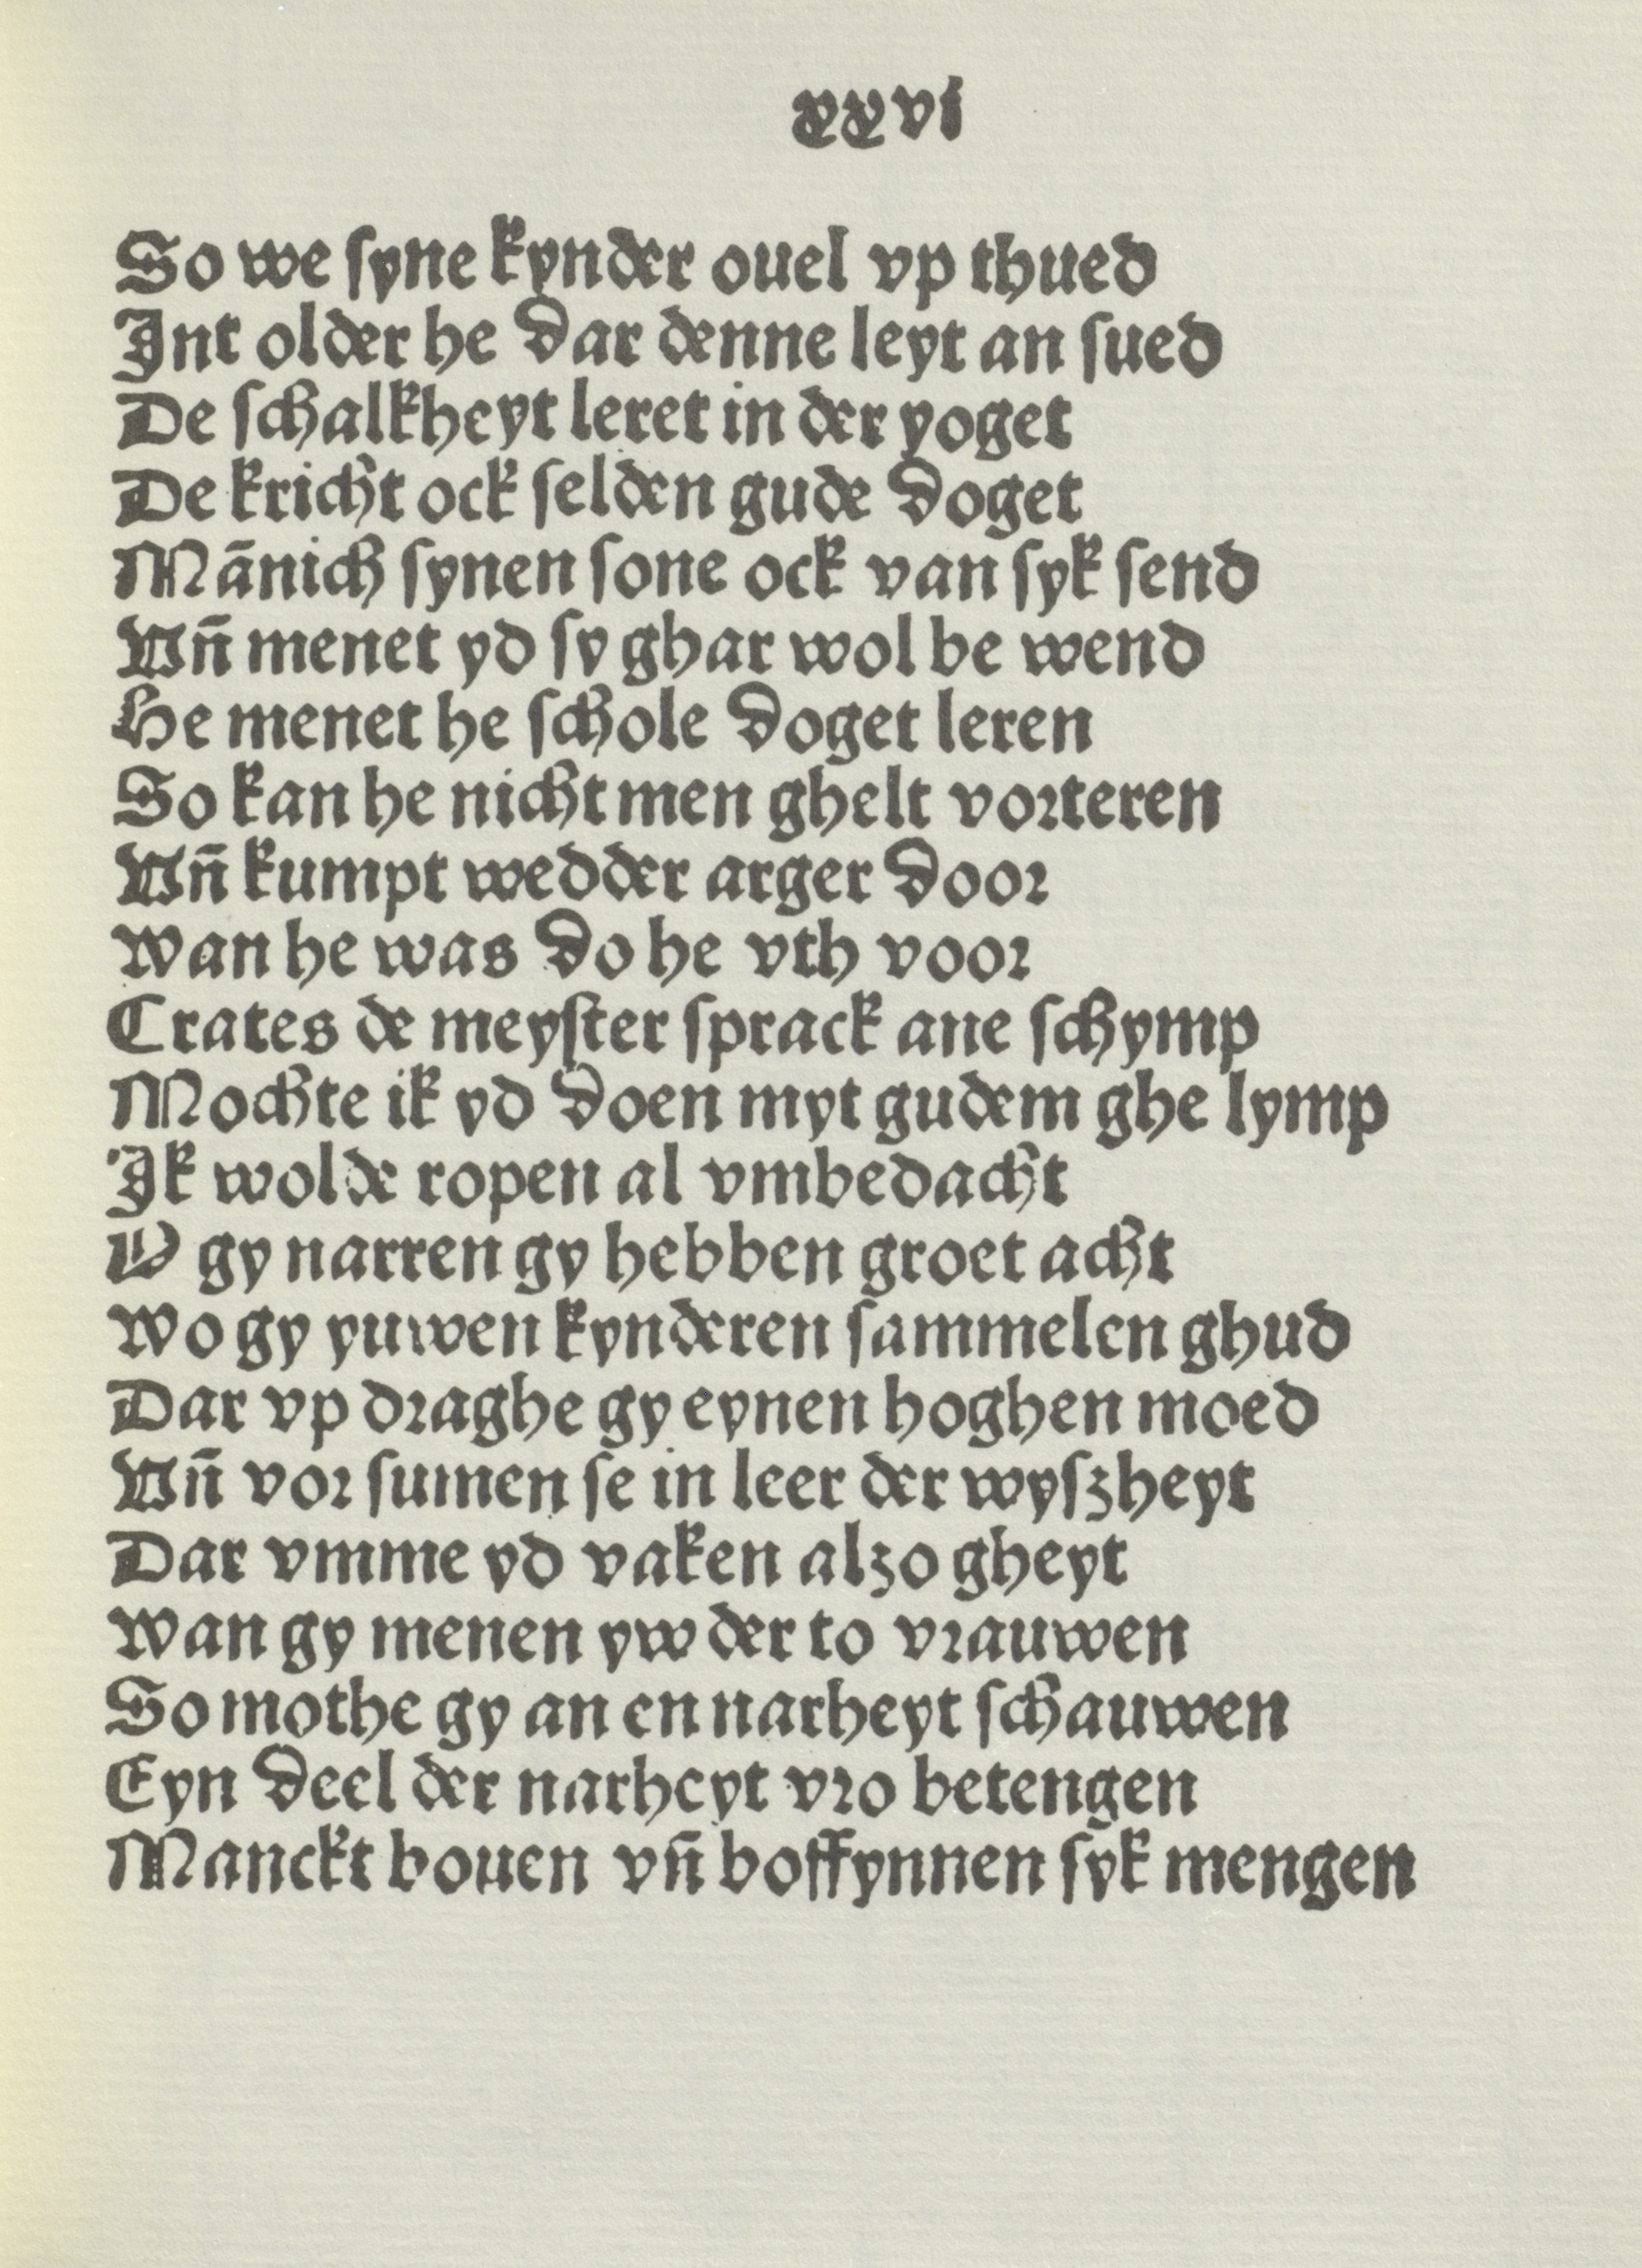 xxvi
So we ſyne kynder ouel vp thued
Int older he dar denne leyt an ſued
De ſchalkheyt leret in der yoget
De kricht ock ſelden gude doget
Mānich ſynen ſone ock van ſyk ſend
Vn̄ menet yd ſy ghar wol be wend
He menet he ſchole doget leren
So kan he nicht men ghelt voꝛteren
Vn̄ kumpt wedder arger dooꝛ
Wan he was do he vth vooꝛ
Crates de meyſter ſprack ane ſchymp
Mochte ik yd doen myt gudem ghe lymp
Ik wolde ropen al vmbedacht
O gy narren gy hebben groet acht
Wo gy yuwen kynderen ſammelen ghud
Dar vp dꝛaghe gy eynen hoghen moed
Vn̄ voꝛ ſumen ſe in leer der wyſzheyt
Dar vmme yd vaken alzo gheyt
Wan gy menen yw der to vꝛauwen
So mothe gy an en narheyt ſchauwen
Eyn deel der narheyt vꝛo betengen
Manckt bouen vn̄ boffynnen ſyk mengen